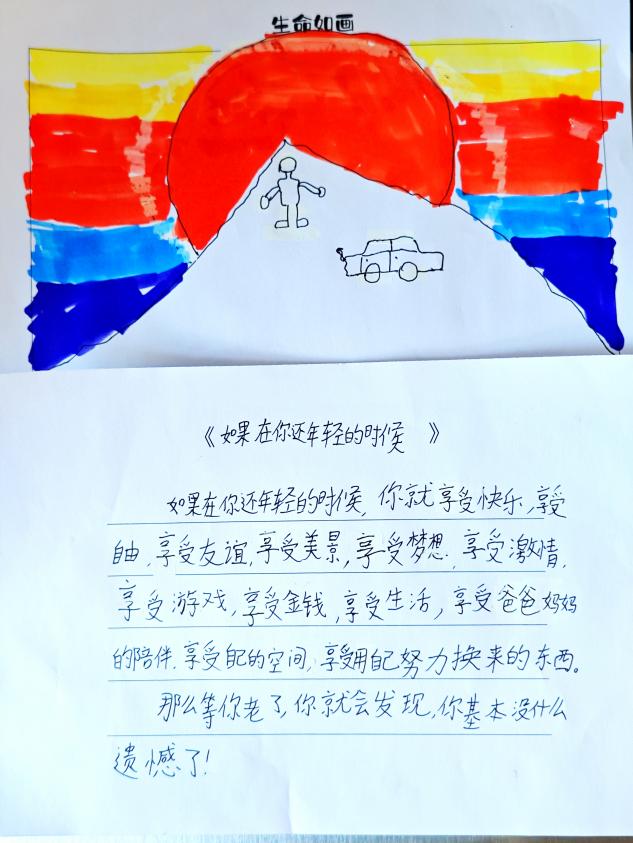 生命如画
《如果在你还年轻的时候 》
如果在你还年轻的时候,你就享受快乐,享受
自由,享受友谊,享受美景,享受梦想,享受激情,
享受游戏,享受金钱,享受生活,享受爸爸妈妈
的陪伴,享受自己的空间,享受用自己努力换来的东西。
那么等你老了,你就会发现,你基本没什么
遗憾了!